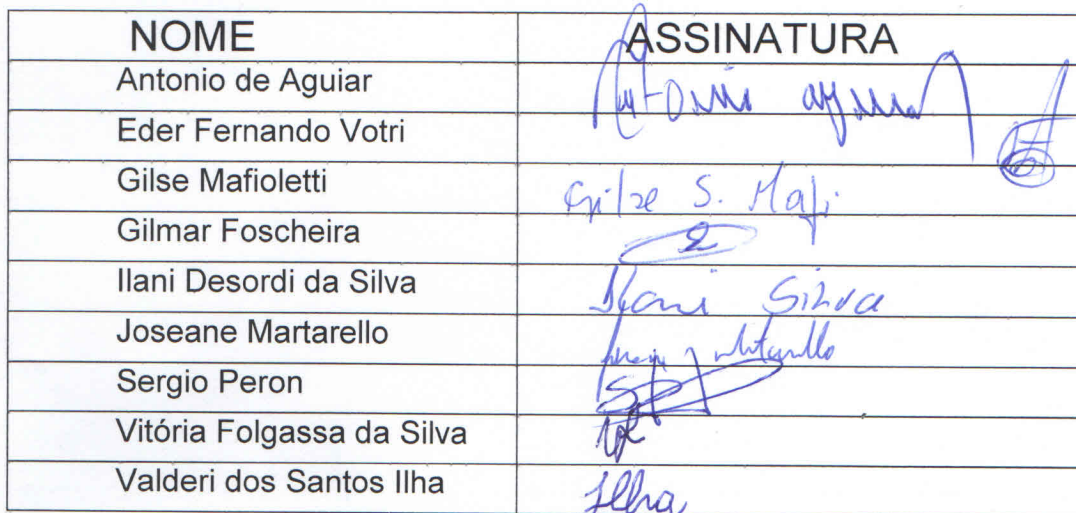 NOME ASSINATURA
Antonio de Aguiar Antonio
Eder Fernando Votri
Gilse Mafioletti Gilse S. Mafi
Gilmar Foscheira
Ilani Desordi da Silva Ilani Silva
Joseane Martarello
Sergio Peron
Vitória Folgassa da Silva
Valderi dos Santos Ilha Ilha